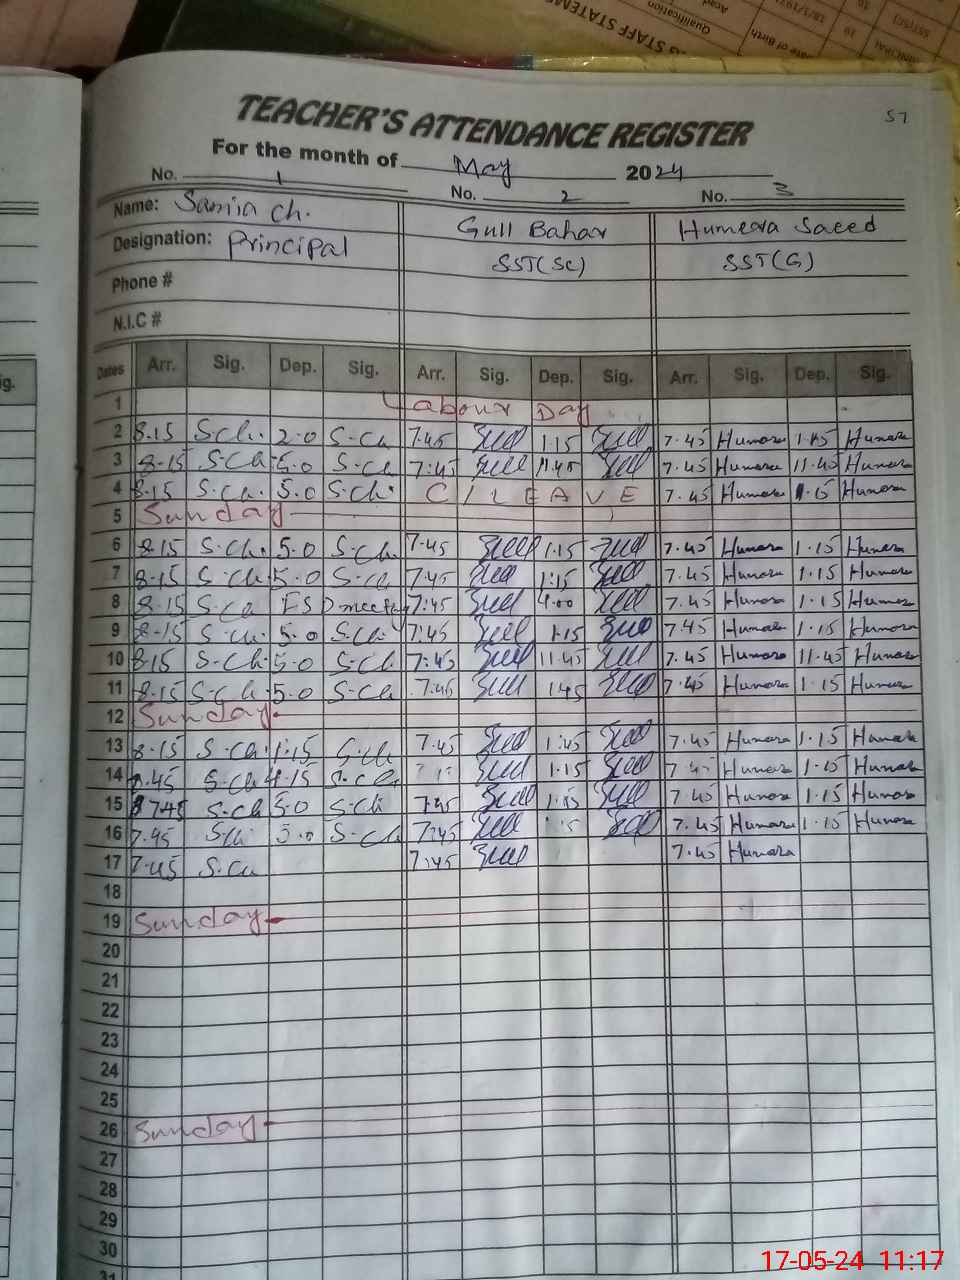 S STAFF STATEME
Qualification
Date of Birth
SST(SC)
57
TEACHER'S ATTENDANCE REGISTER
For the month of May 2024
No. 1 No. 2 No. 3
Name: Samia Ch. Gull Bahar Humera Saeed
Designation: Principal SST(SC) SST(G)
Phone #
N.I.C #
Dates Arr. Sig. Dep. Sig. Arr. Sig. Dep. Sig. Arr. Sig. Dep. Sig.
1 Labour Day
2 8.15 S.ch. 2.0 S.ch 7.45 Gull 1.15 Gull 7.45 Humera Humera
3 8.15 S.ch 5.0 S.ch 7:45 Gull 11.45 Gull 7.45 Humera 11.45 Humera
4 8.15 S.ch. 5.0 S.ch. C / LEAVE 7.45 Humera 1.15 Humera
5 Sunday
6 8.15 S.ch. 5.0 S.ch. 7.45 Gull 1.15 Gull 7.45 Humera 1.15 Humera
7 8.15 S.ch. 5.0 S.ch 7.45 Gull 1:15 Gull 7.45 Humera 1.15 Humera
8 8.15 S.ch meeting 7:45 Gull 4.00 Gull 7.45 Humera 1.15 Humera
9 8.15 S.ch. 5.0 S.ch 7:45 Gull 1.15 Gull 7.45 Humera 1.15 Humera
10 8.15 S.ch. 5.0 S.ch 7:45 Gull 11.45 Gull 7.45 Humera 11.45 Humera
11 8.15 S.ch. 5.0 S.ch 7.45 Gull 1.45 Gull 7.45 Humera 1.15 Humera
12 Sunday
13 8.15 S.ch. 1.15 S.ch 7.45 Gull 1.45 Gull 7.45 Humera 1.15 Humera
14 S.ch 4.15 S.ch. Gull 1.15 Gull 7.45 Humera 1.15 Humera
15 7.45 S.ch 5.0 S.ch 7.45 Gull Gull 7.45 Humera 1.15 Humera
16 7.45 S.ch 5.0 S.ch 7:45 Gull Gull 7.45 Humera 1.15 Humera
17 7.45 S.ch 7:45 Gull 7.45 Humera
18
19 Sunday
20
21
22
23
24
25
26 Sunday
27
28
29
30
31
17-05-24 11:17